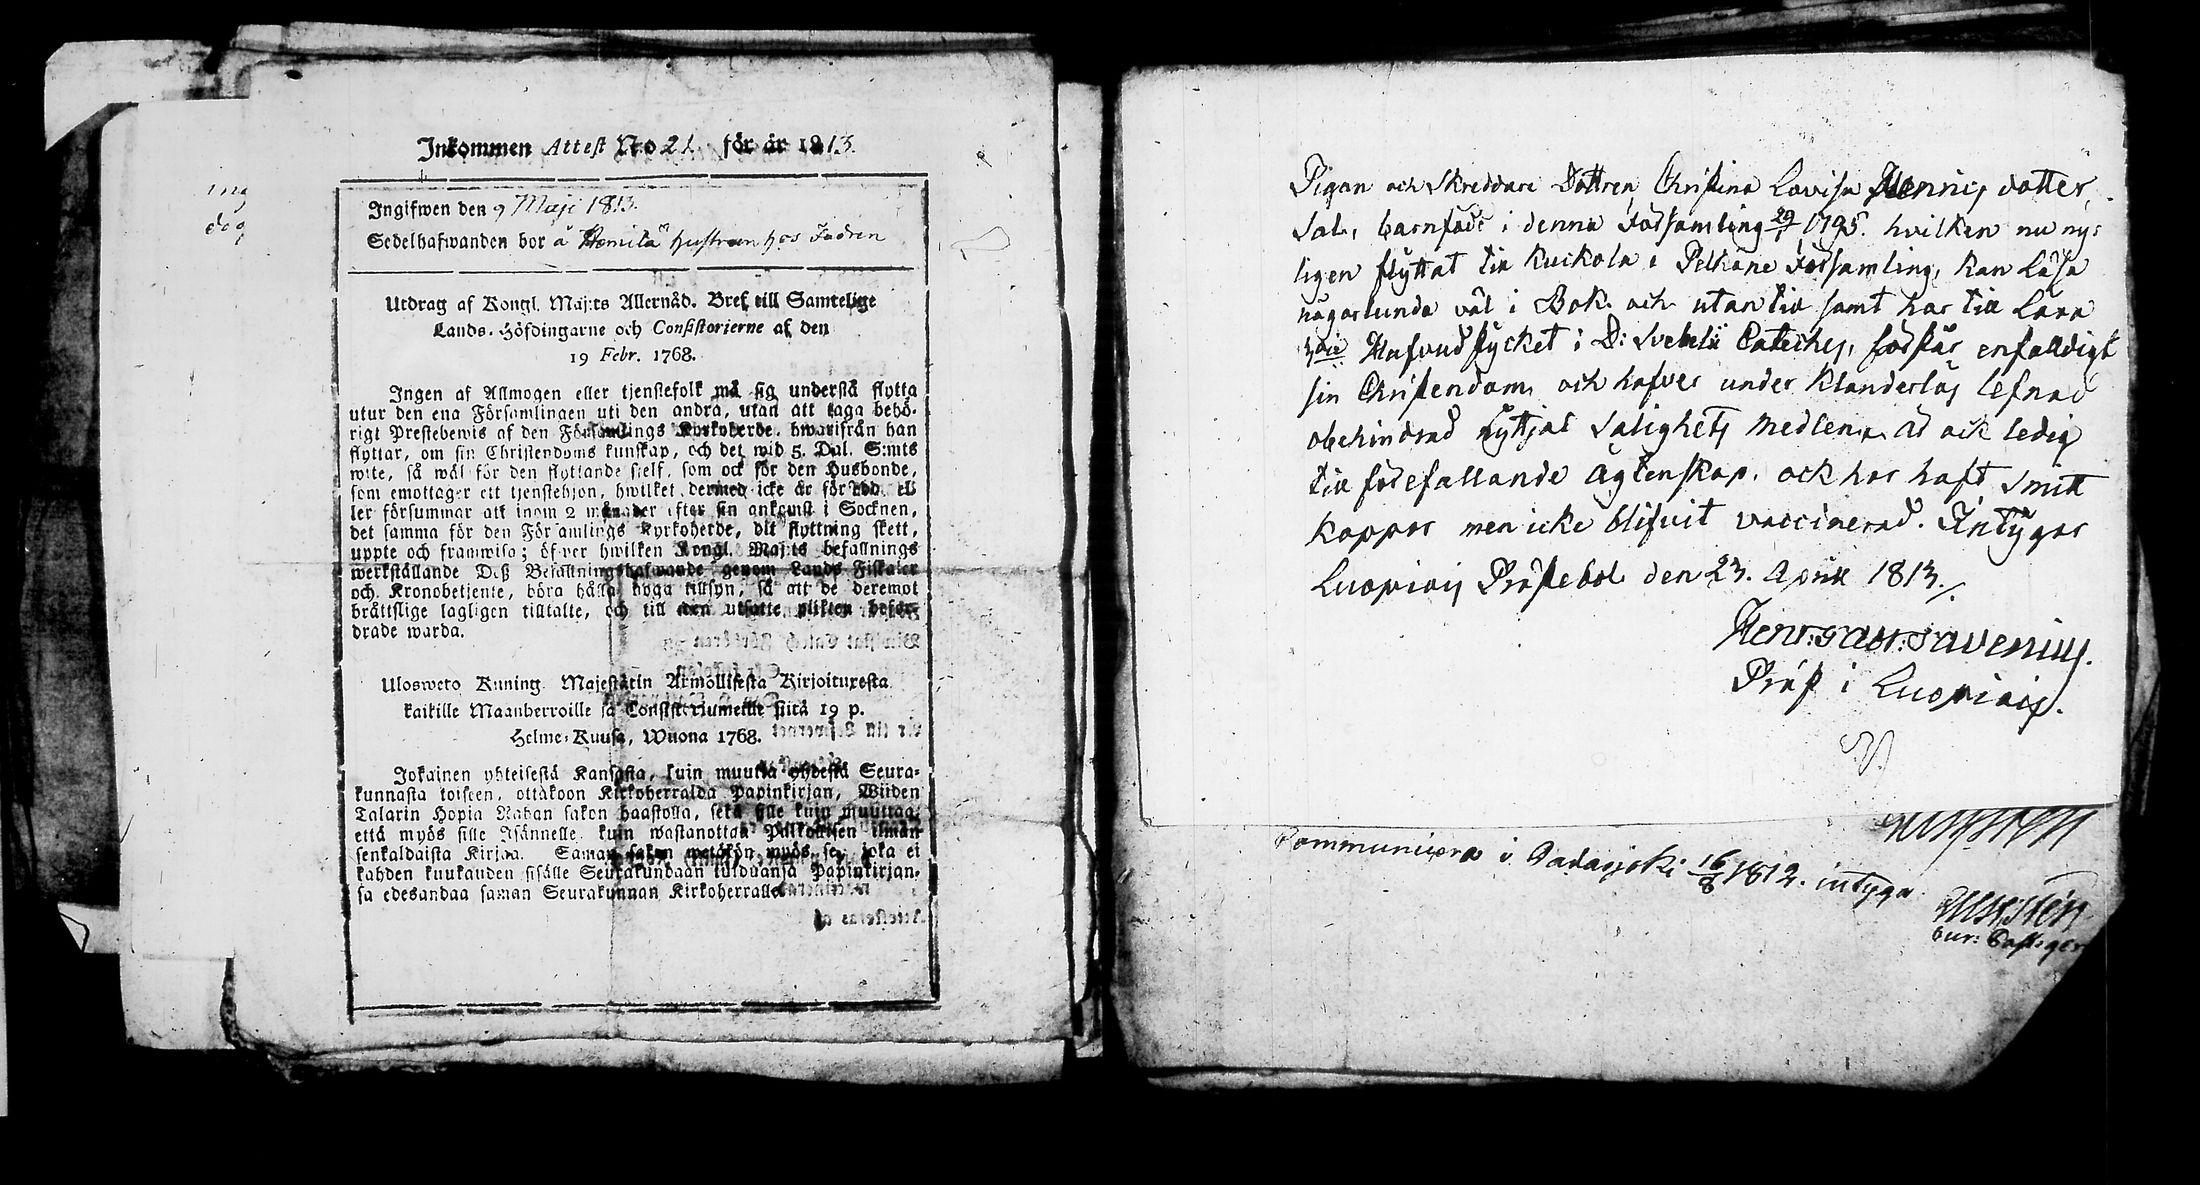 Inkommen Attest No 21. för år 1813.
Ingifwen den 9 Maji 1813.
Sedelhafwanden bor å Hemilä hustrun hos Fadren
Utdrag af Kongl. Maj:ts Allernåd. Bref till Samtelige
Lands-Höfdingarne och Consistorierne af den
19 Febr. 1768.
Ingen af Allmogen eller tjenstefolk må sig understå flytta
utur den ena Församlingen uti den andra, utan att taga behö-
rigt Prestebewis af den Församlings Kyrkoherde, hwarifrån han
flyttar, om sin Christendoms kunskap, och det wid 5. Dal. S:mts
wite, så wäl för den flyttande sielf, som ock för den Husbonde,
som emottager ett tjenstehjon, hwilket dermed icke är försedd, el-
ler försummar att inom 2 månader efter sin ankomst i Socknen,
det samma för den Församlings Kyrkoherde, dit flyttning skett,
uppte och framwisa; öfwer hwilken Kongl. Maj:ts befallnings
werkställande Deß Befallningshafwande genom Lands Fiskaler
och Kronobetjente, böra hålla noga tillsyn, så att de deremot
bråttslige lagligen tilltalte, och till den utsatte plikten befor-
drade warda.
Ulosweto Kuning. Majestätin Armollisesta Kirjoituxesta
kaikille Maanherroille ja Consistoriumeille siitä 19 p.
Helme-Kuusa, Wuona 1768.
Jokainen yhteisestä Kansasta, kuin muutta yhdestä Seura-
kunnasta toiseen, ottakoon Kirkoherralda Papinkirjan, Wiiden
Talarin Hopia Rahan sakon haastolla, sekä sille kuin muuttaa,
että myös sille Isännelle kuin wastanottaa Palkollisen ilman
senkaldaista Kirjaa. Saman sakon wetäkön myös se, joka ei
kahden kuukauden sisälle Seurakundaan tulduansa Papinkirjan-
sa edesandaa saman Seurakunnan Kirkoherralle.
Pigan och Skreddare Dottren, Christina Lovisa Henricsdotter,
Sal, barnfödd i denna Församling 29/1 1795. hvilken nu ny-
ligen flyttat till Kuckola i Pelkäne Församling, kan läsa
någorlunda väl i Bok och utantill samt har till Lära
Hufvudstycket i D: Svebelii Cateches, förstår enfaldigt
sin Christendom och hafver under klanderlös lefnad
obehindrad nyttjat Salighets Medlen. Är ock ledig
till förefallande Ägtenskap. ock har haft Smitt
koppor men icke blifvit vaccinerad. Intygar
Luopiois Prästebol den 23. April 1813.
Henr: Gabr: Favenius.
Präst i Luopiois.
Communicera i Padasjoki 16/8 1812. intygar